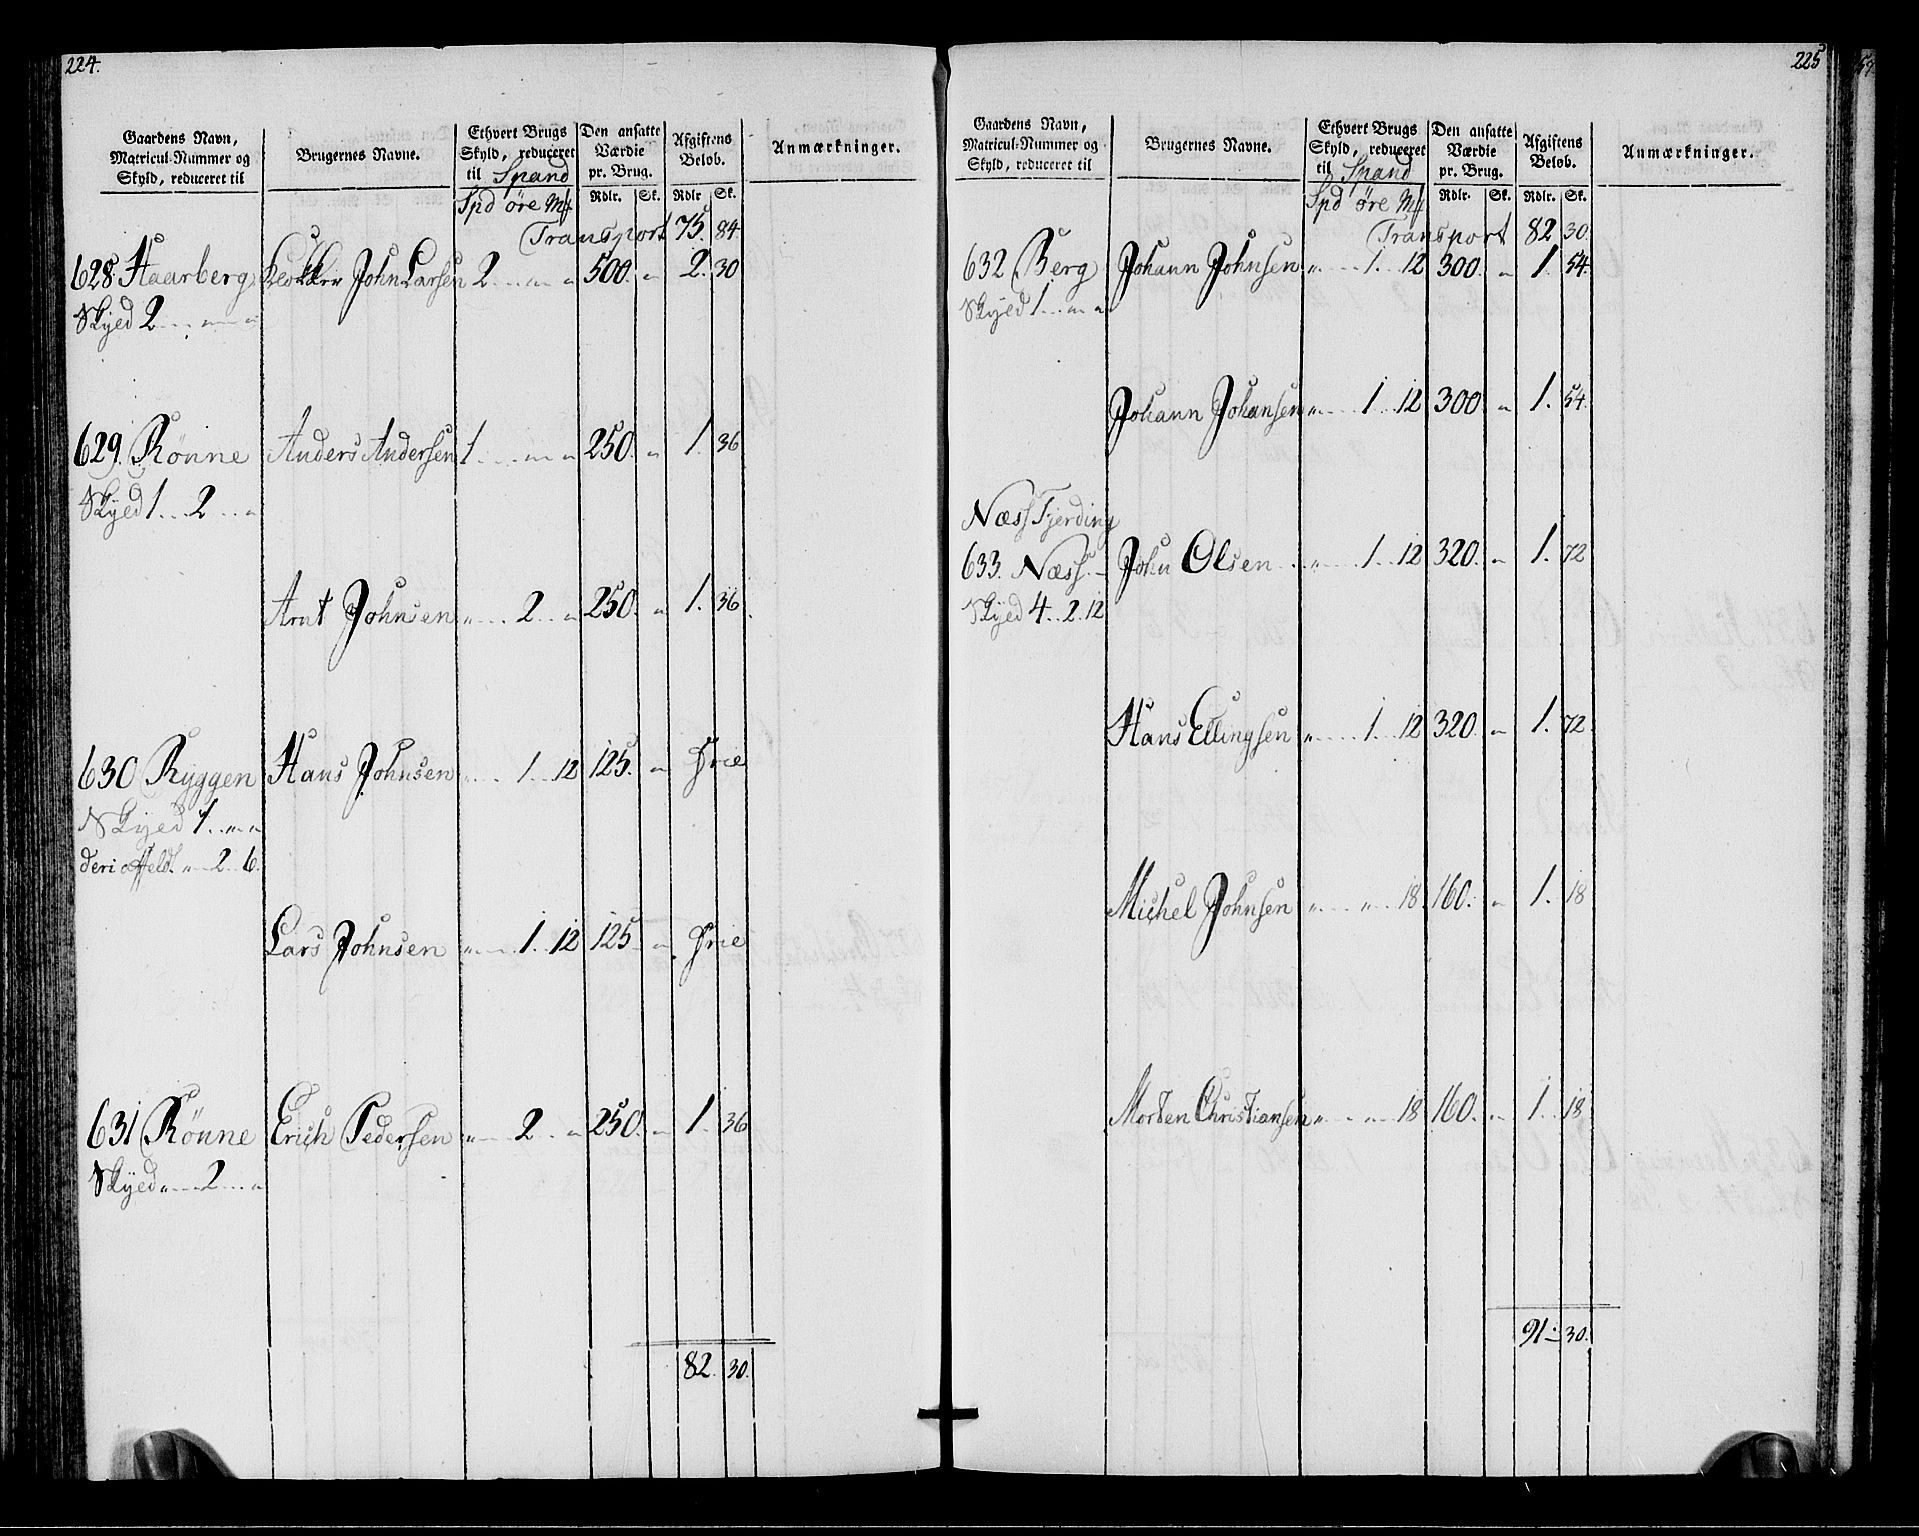 224.
Gaardens Navn,
Matricul-Nummer og
Skyld, reduceret til
Brugernes Navne.
Ethvert Brugs
Skyld, reduceret
til Spand
Spd øre Mf
Den ansatte
Værdie
pr. Brug.
Rdlr. Sk.
Afgiftens
Beløb.
Rdlr. Sk.
Anmærkninger.
Transport 75. 84
628. Haarberg Klokker John Larsen 2 . . . „ „ 500. „ 2. 30
Skyld 2 . . . „ „
629. Rönne Anders Andersen 1 . . . „ „ 250. „ 1. 36
Skyld 1 . . 2 . . „
Arnt Johnsen „ . . . 2 . . „ 250. „ 1. 36
630 Ryggen Hans Johnsen „ . . . 1 . . 12 125. „ Frie
Skyld 1 . . „ „
deri „ 2 . . 6.
Lars Johnsen „ . . . 1 . . 12 125 „ Frie
631 Rönne Erich Pedersen „ . . . 2 . . „ 250. „ 1. 36
Skyld „ . . 2 . . „
82. 30.
225
Gaardens Navn,
Matricul-Nummer og
Skyld, reduceret til
Brugernes Navne.
Ethvert Brugs
Skyld, reduceret
til Spand
Spd øre Mf
Den ansatte
Værdie
pr. Brug.
Rdlr. Sk.
Afgiftens
Beløb.
Rdlr. Sk.
Anmærkninger.
Transport 82 30.
632 Berg Johann Johnsen „ . . . 1 . . 12 300. „ 1. 54
Skyld 1 . . „ „
Johann Johansen „ . . . 1 . . 12 300 „ 1. 54.
Næss Fjerding
633. Næss. John Olsen . . „ . . . 1 . . 12 320. „ 1. 72
Skyld 4 . . 2 . 12
Hans Ellingsen „ . . . 1 . . 12 320. „ 1. 72
Michel Johnsen „ . . . „ . . 18 160. „ 1. 18
Morten Christiansen „ . . . „ . . 18 160. „ 1. 18
91. 30.